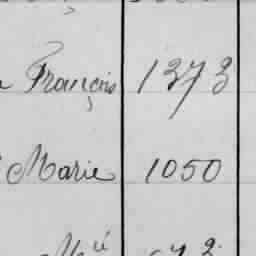 François 1373
Marie 1050